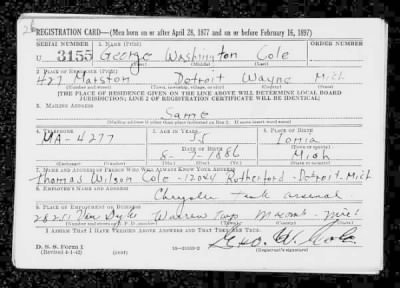 REGISTRATION CARD—(Men born on or after April 28, 1877 and on or before February 16, 1897)
SERIAL NUMBER 1. NAME (Print) ORDER NUMBER
U 3155 George Washington Cole
(First) (Middle) (Last)
2. PLACE OF RESIDENCE (Print)
427 Marston Detroit Wayne Mich
(Number and street) (Town, township, village, or city) (County) (State)
[THE PLACE OF RESIDENCE GIVEN ON THE LINE ABOVE WILL DETERMINE LOCAL BOARD
JURISDICTION; LINE 2 OF REGISTRATION CERTIFICATE WILL BE IDENTICAL]
3. MAILING ADDRESS
Same
[Mailing address if other than place indicated on line 2. If same insert word same]
4. TELEPHONE 5. AGE IN YEARS 6. PLACE OF BIRTH
MA-4277 55 Ionia
DATE OF BIRTH (Town or county)
8-7-1886 Mich
(Exchange) (Number) (Mo.) (Day) (Yr.) (State or country)
7. NAME AND ADDRESS OF PERSON WHO WILL ALWAYS KNOW YOUR ADDRESS
Thomas Wilson Cole - 12044 Rutherford - Detroit - Mich
8. EMPLOYER'S NAME AND ADDRESS
Chrysler tank arsenal
9. PLACE OF EMPLOYMENT OR BUSINESS
28251 Van Dyke Warren Twp Macomb - Mich
(Number and street or R. F. D. number) (Town) (County) (State)
I AFFIRM THAT I HAVE VERIFIED ABOVE ANSWERS AND THAT THEY ARE TRUE.
Geo. W. Cole
D. S. S. Form 1
(Revised 4-1-42) (over) (Registrant's signature)